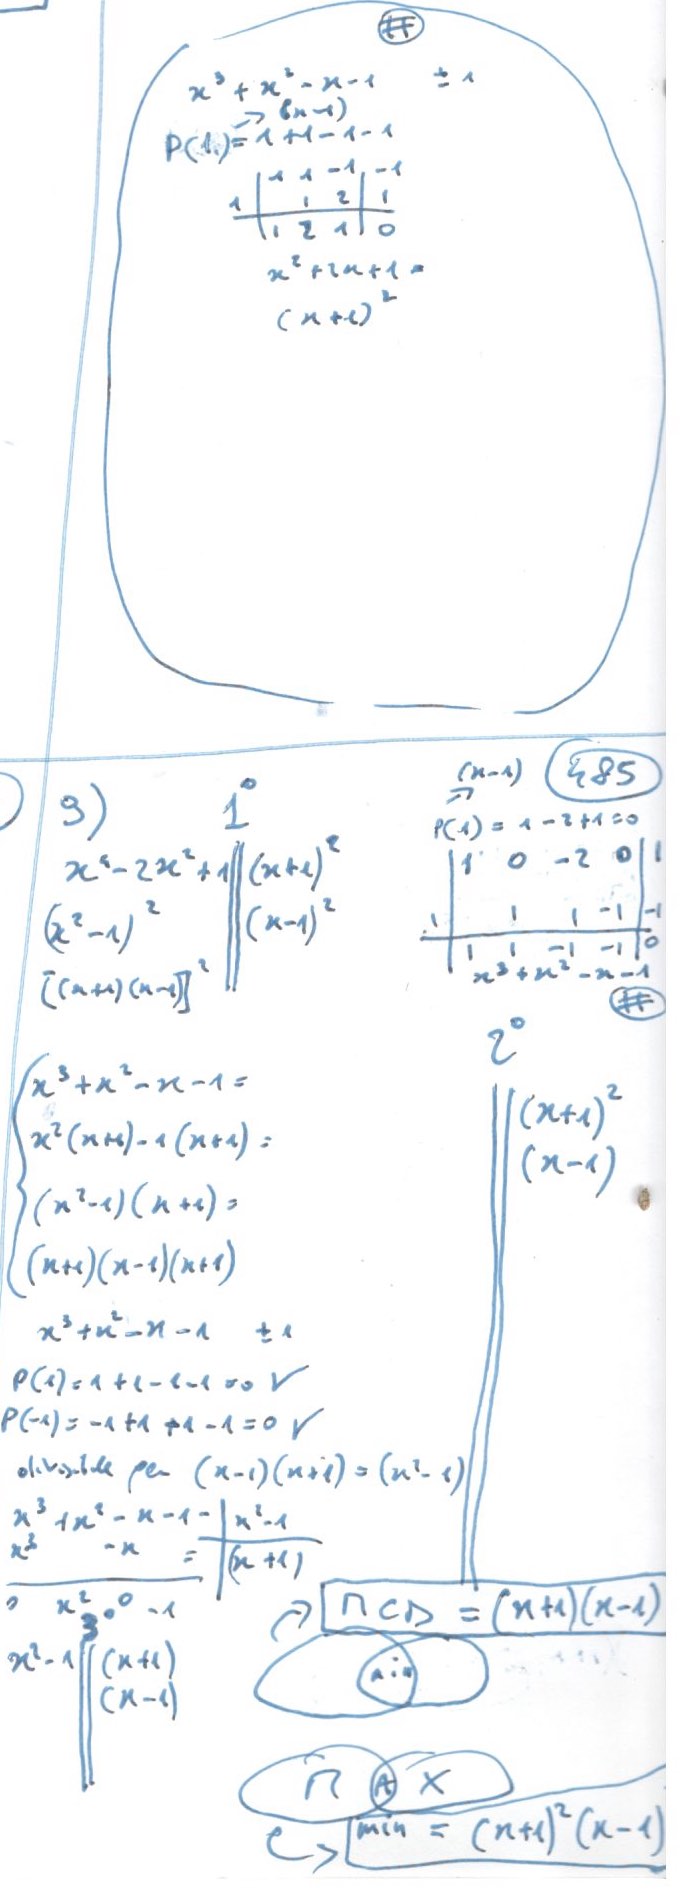 #
x³ + x² - x - 1   ± 1
→ (x-1)
P(1) = 1 + 1 - 1 - 1
1 1 -1 | -1
1 | 1 2 | 1
1 2 1 | 0
x² + 2x + 1 =
(x+1)²
(x-1) 485
9) 1°
P(1) = 1 - 2 + 1 = 0
x⁴ - 2x² + 1 || (x+1)²
(x² - 1)² || (x-1)²
[(x+1)(x-1)]²
1 0 -2 0 | 1
1 | 1 1 -1 | -1
1 1 -1 -1 | 0
x³ + x² - x - 1
#
2°
(x+1)²
(x-1)
x³ + x² - x - 1 =
x²(x+1) - 1(x+1) =
(x²-1)(x+1) =
(x+1)(x-1)(x+1)
x³ + x² - x - 1   ± 1
P(1) = 1 + 1 - 1 - 1 = 0 ✓
P(-1) = -1 + 1 + 1 - 1 = 0 ✓
divisibile per (x-1)(x+1) = (x²-1)
x³ + x² - x - 1 - | x² - 1
x³ - x = | (x+1)
0 x² 0 -1
3°
x² - 1 || (x+1)
(x-1)
MCD = (x+1)(x-1)
min
M A X
min = (x+1)²(x-1)